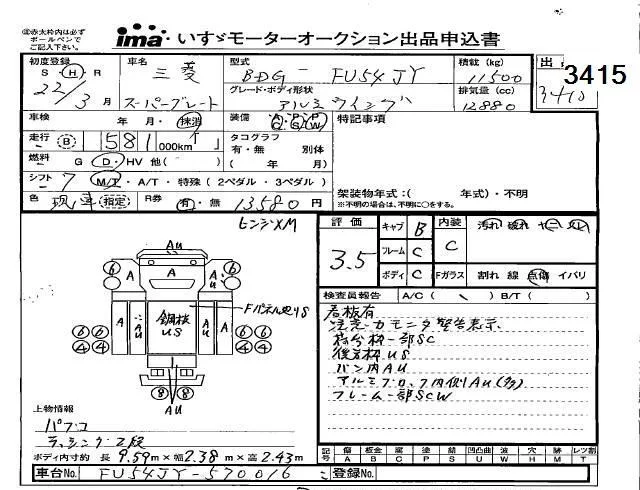 ㊟赤太枠内は必ず
ボールペンで
ご記入下さい。
ima・いすゞモーターオークション出品申込書
初度登録
S H R
22/3月
車名
三菱
スーパーグレート
型式
BDG-FU54JY
グレード・ボディ形状
アルミウイング
積載 (kg)
11500
排気量 (cc)
12880
出
3415
3415
車検 年・月・抹消
装備 AC・PS・PW
特記事項
走行 B 581 000km
タコグラフ
有・無 別体
( 年 月)
燃料 G D・HV 他( )
シフト 7 M/T・A/T・特殊(2ペダル・3ペダル)
架装物年式:( 年式)・不明
※不明の場合は、不明に○をする。
色 現車 指定
R券 有・無 13580 円
評価
3.5
キャブ B
フレーム C
ボディ C
内装 C
汚れ 破れ
Fガラス 割れ 線 点傷 イバリ
検査員報告 A/C( ) B/T( )
看板有
荷台枠一部SC
後方枠US
バン内AU
フレーム一部SCW
AU
A
6 6
6 6
A A
鋼板
US
AU A
2 6
4 4
6 2
4 4
8 8
AU
上物情報
パブコ
ラッシング2段
ボディ内寸約 長 9.59m×幅 2.38m×高 2.43m
記号 傷A 板金B 腐C 塗P 錆S 凹凸U 波W 穴H 跡M レンズ割T
車台No. FU54JY-570016
登録No.